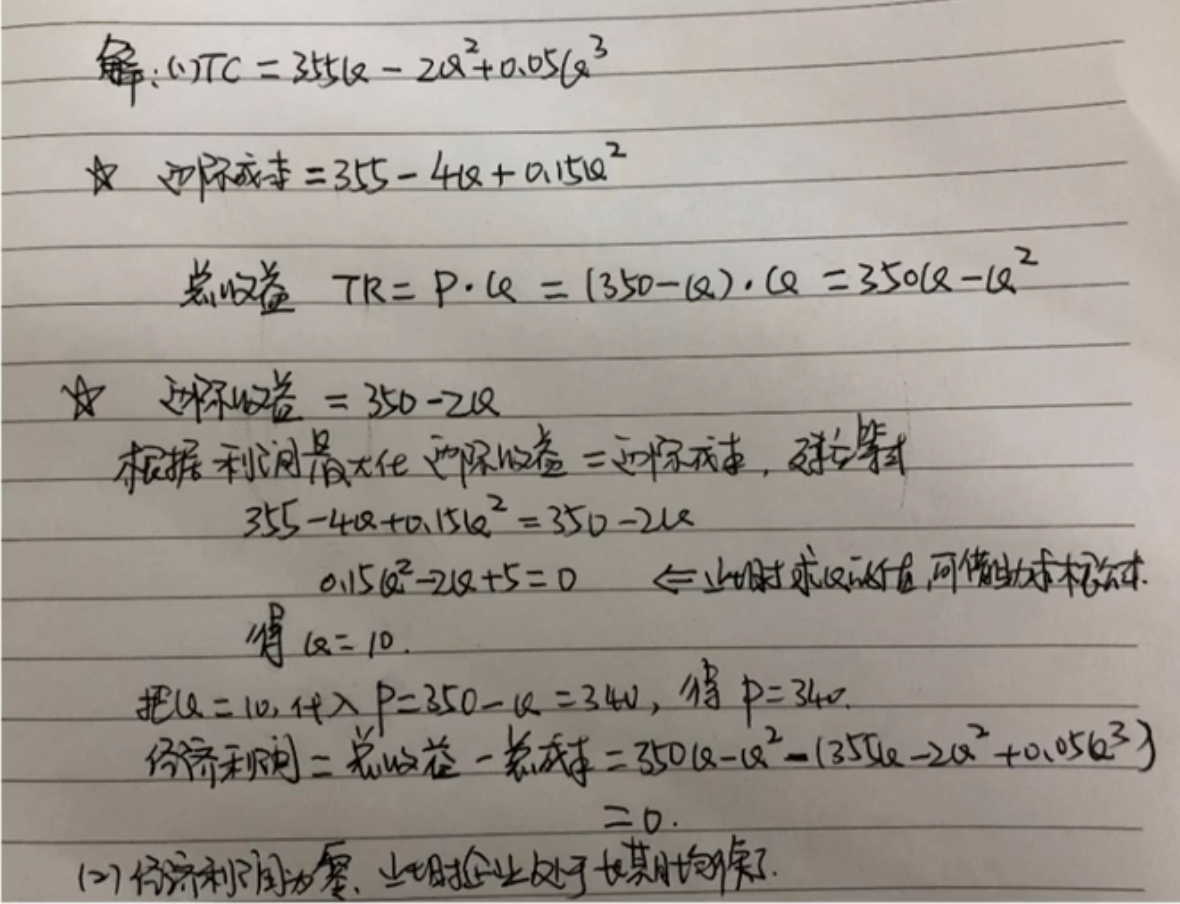 解:(1)TC = 355Q - 2Q²+0.05Q³
☆ 边际成本 = 355 - 4Q + 0.15Q²
总收益 TR = P·Q = (350-Q)·Q = 350Q - Q²
☆ 边际收益 = 350 - 2Q
根据利润最大化 边际收益 = 边际成本, 建立等式
355-4Q+0.15Q² = 350-2Q
0.15Q²-2Q+5=0 ⇐ 此时求Q的值,可借助求根公式.
得 Q = 10.
把Q = 10,代入 P=350-Q = 340, 得 P=340.
经济利润 = 总收益 - 总成本 = 350Q-Q² - (355Q-2Q²+0.05Q³)
= 0.
(2)经济利润为零、此时企业处于长期均衡了.